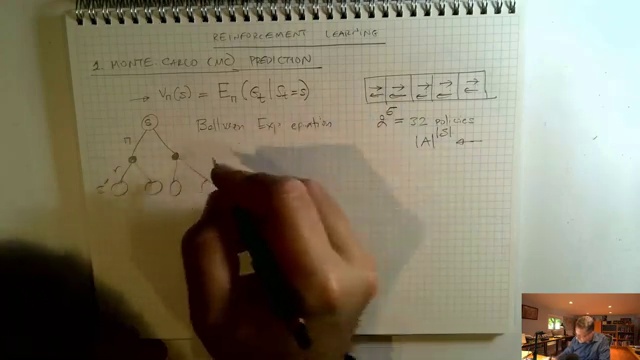 REINFORCEMENT LEARNING
1. MONTE CARLO (MC) PREDICTION
→ Vπ(s) = Eπ(Gt | St = s)
Bellman Exp. equation
2^5 = 32 policies
|A|^|S| ←
S
π
r
s'